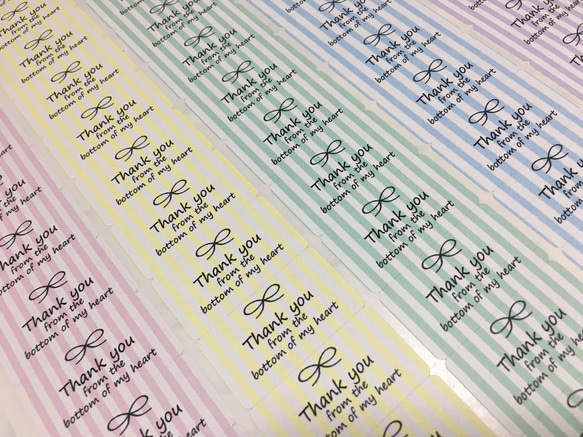 Thank you
from the
bottom of my heart
Thank you
from the
bottom of my heart
Thank you
from the
bottom of my heart
Thank you
from the
bottom of my heart
Thank you
from the
bottom of my heart
Thank you
from the
bottom of my heart
Thank you
from the
bottom of my heart
Thank you
from the
bottom of my heart
Thank you
from the
bottom of my heart
Thank you
from the
bottom of my heart
Thank you
from the
bottom of my heart
Thank you
from the
bottom of my heart
Thank you
from the
bottom of my heart
Thank you
from the
bottom of my heart
Thank you
from the
bottom of my heart
Thank you
from the
bottom of my heart
Thank you
from the
bottom of my heart
Thank you
from the
bottom of my heart
Thank you
from the
bottom of my heart
Thank you
from the
bottom of my heart